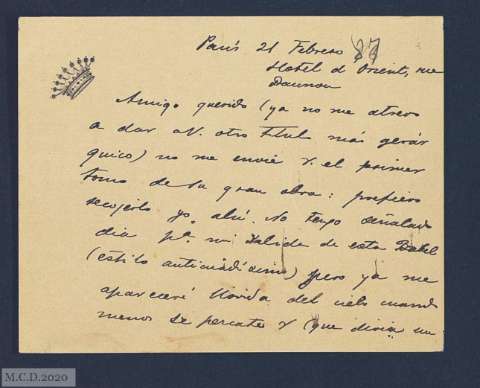 París 21 Febrero 87
Hotel d'Orient, rue
Daunou
Amigo querido (ya no me atrevo
a dar a V. otro titul más gerár
quico) no me envíe V. el primer
tomo de su gran obra: prefiero
recojerlo yo ahí. No tengo señalado
día pª mi salida de esta Babel
(estilo anticuadísimo) pero ya me
apareceré llovida del cielo cuando
menos se percate V (que diría un
M.C.D.2020